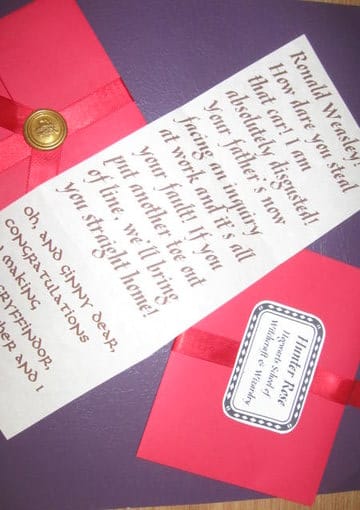 Ronald Weasley
How dare you steal
that car! I am
absolutely disgusted!
Your father's now
facing an inquiry
at work and it's all
your fault! If you
put another toe out
of line, we'll bring
you straight home!
Oh, and Ginny dear,
congratulations
making
Gryffindor,
ther and I
Hunter Rose
Hogwarts School of
Witchcraft & Wizardry